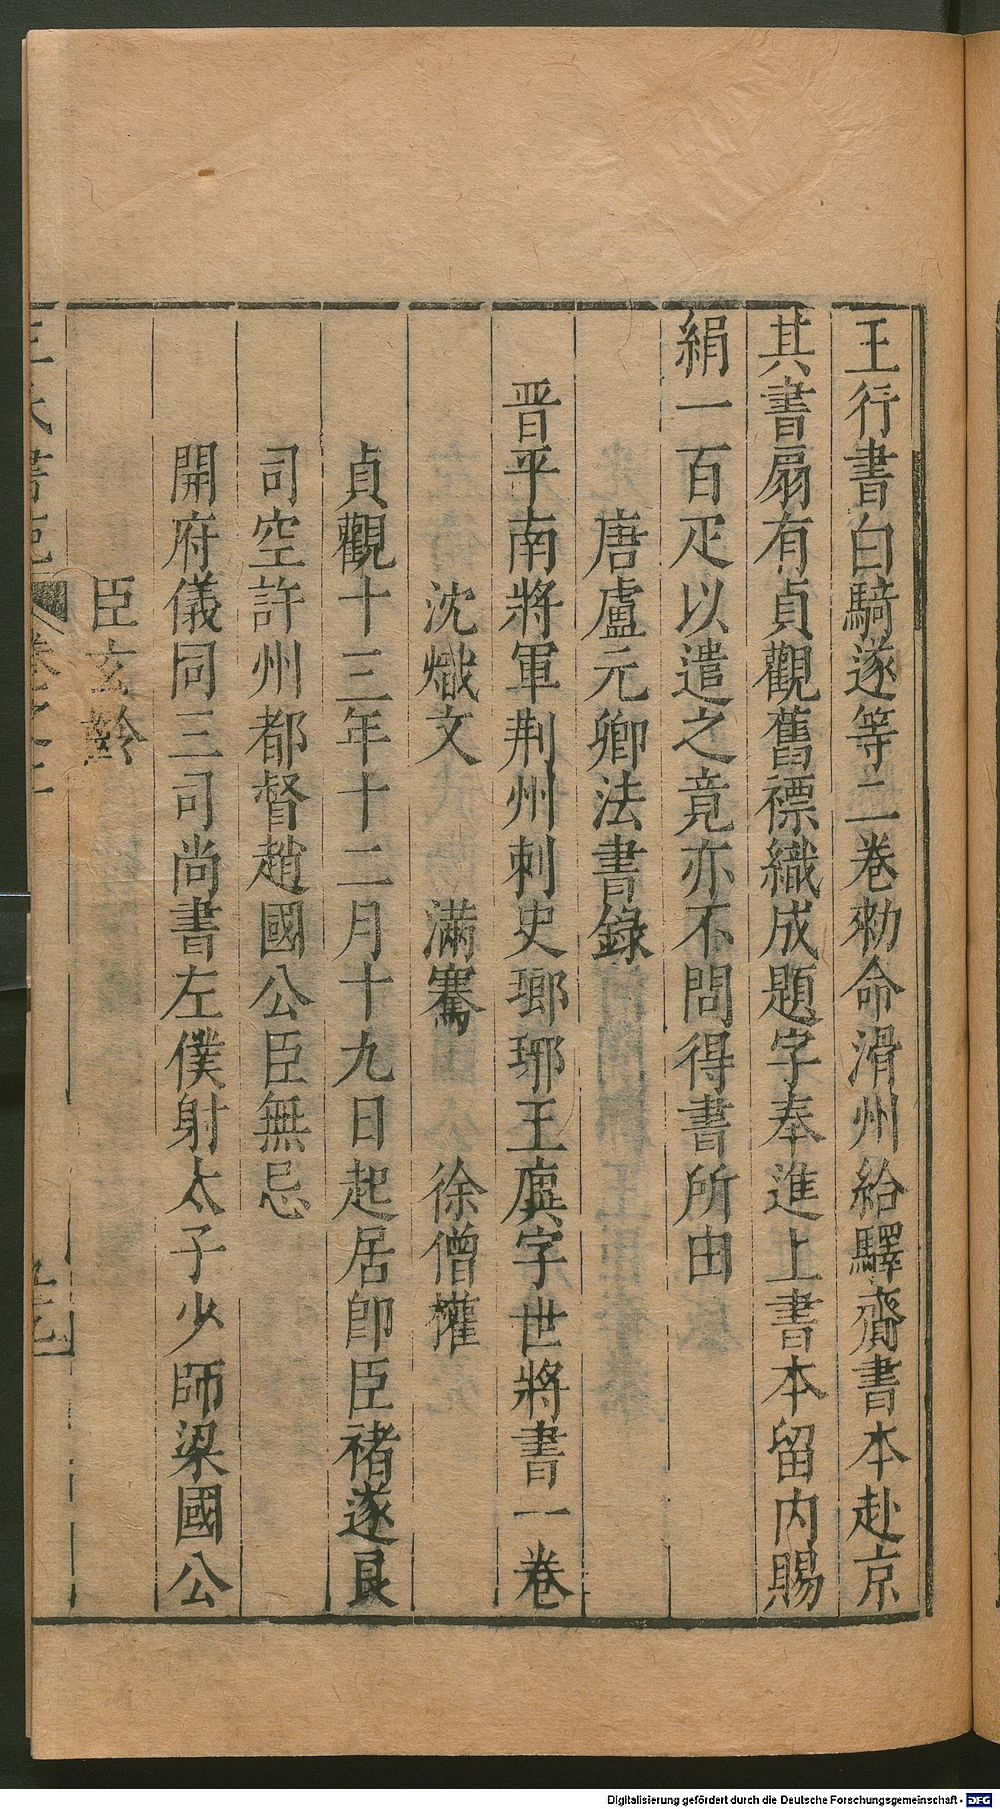 王行書白騎遂等二卷勑命滑州給驛齎書本赴京
其書扇有貞觀舊褾織成題字奉進上書本留内賜
絹一百疋以遣之竟亦不問得書所由
唐盧元卿法書錄
晋平南將軍荆州刺史瑯琊王廙字世將書一卷
沈熾文 滿騫 徐僧權
貞觀十三年十二月十九日起居郎臣褚遂良
司空許州都督趙國公臣無忌
開府儀同三司尚書左僕射太子少師梁國公
臣玄齡
王氏書苑 卷之
Digitalisierung gefördert durch die Deutsche Forschungsgemeinschaft - DFG